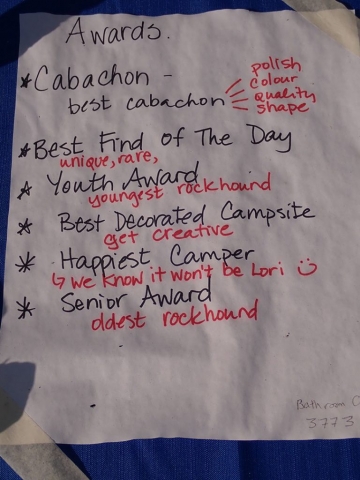 Awards.
*Cabachon -
best cabachon
polish
colour
quality
shape
*Best Find of The Day
unique, rare,
* Youth Award
youngest rockhound
* Best Decorated Campsite
get creative
* Happiest Camper
↳ we know it won't be Lori ☺
* Senior Award
oldest rockhound
Bathroom
3773